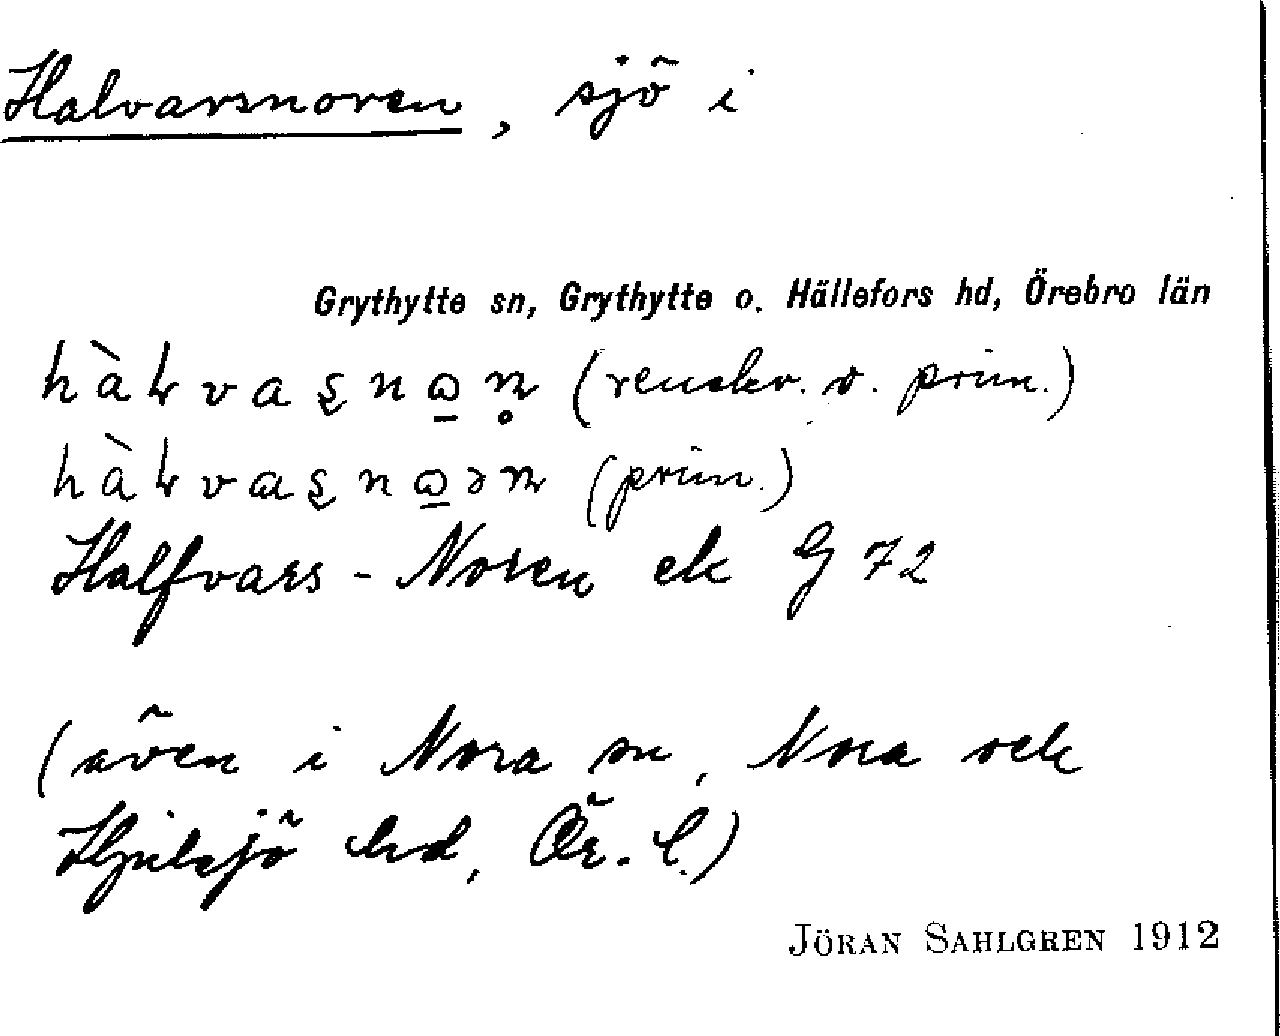 Halvarsnoren, sjö i
Grythytte sn, Grythytte o. Hällefors hd, Örebro län
(renskr. o. prim.)
(prim.)
Halfvars-Noren ek G 72
(även i Nora sn, Nora och
Hjulsjö hd, Ör. l.)
JÖRAN SAHLGREN 1912